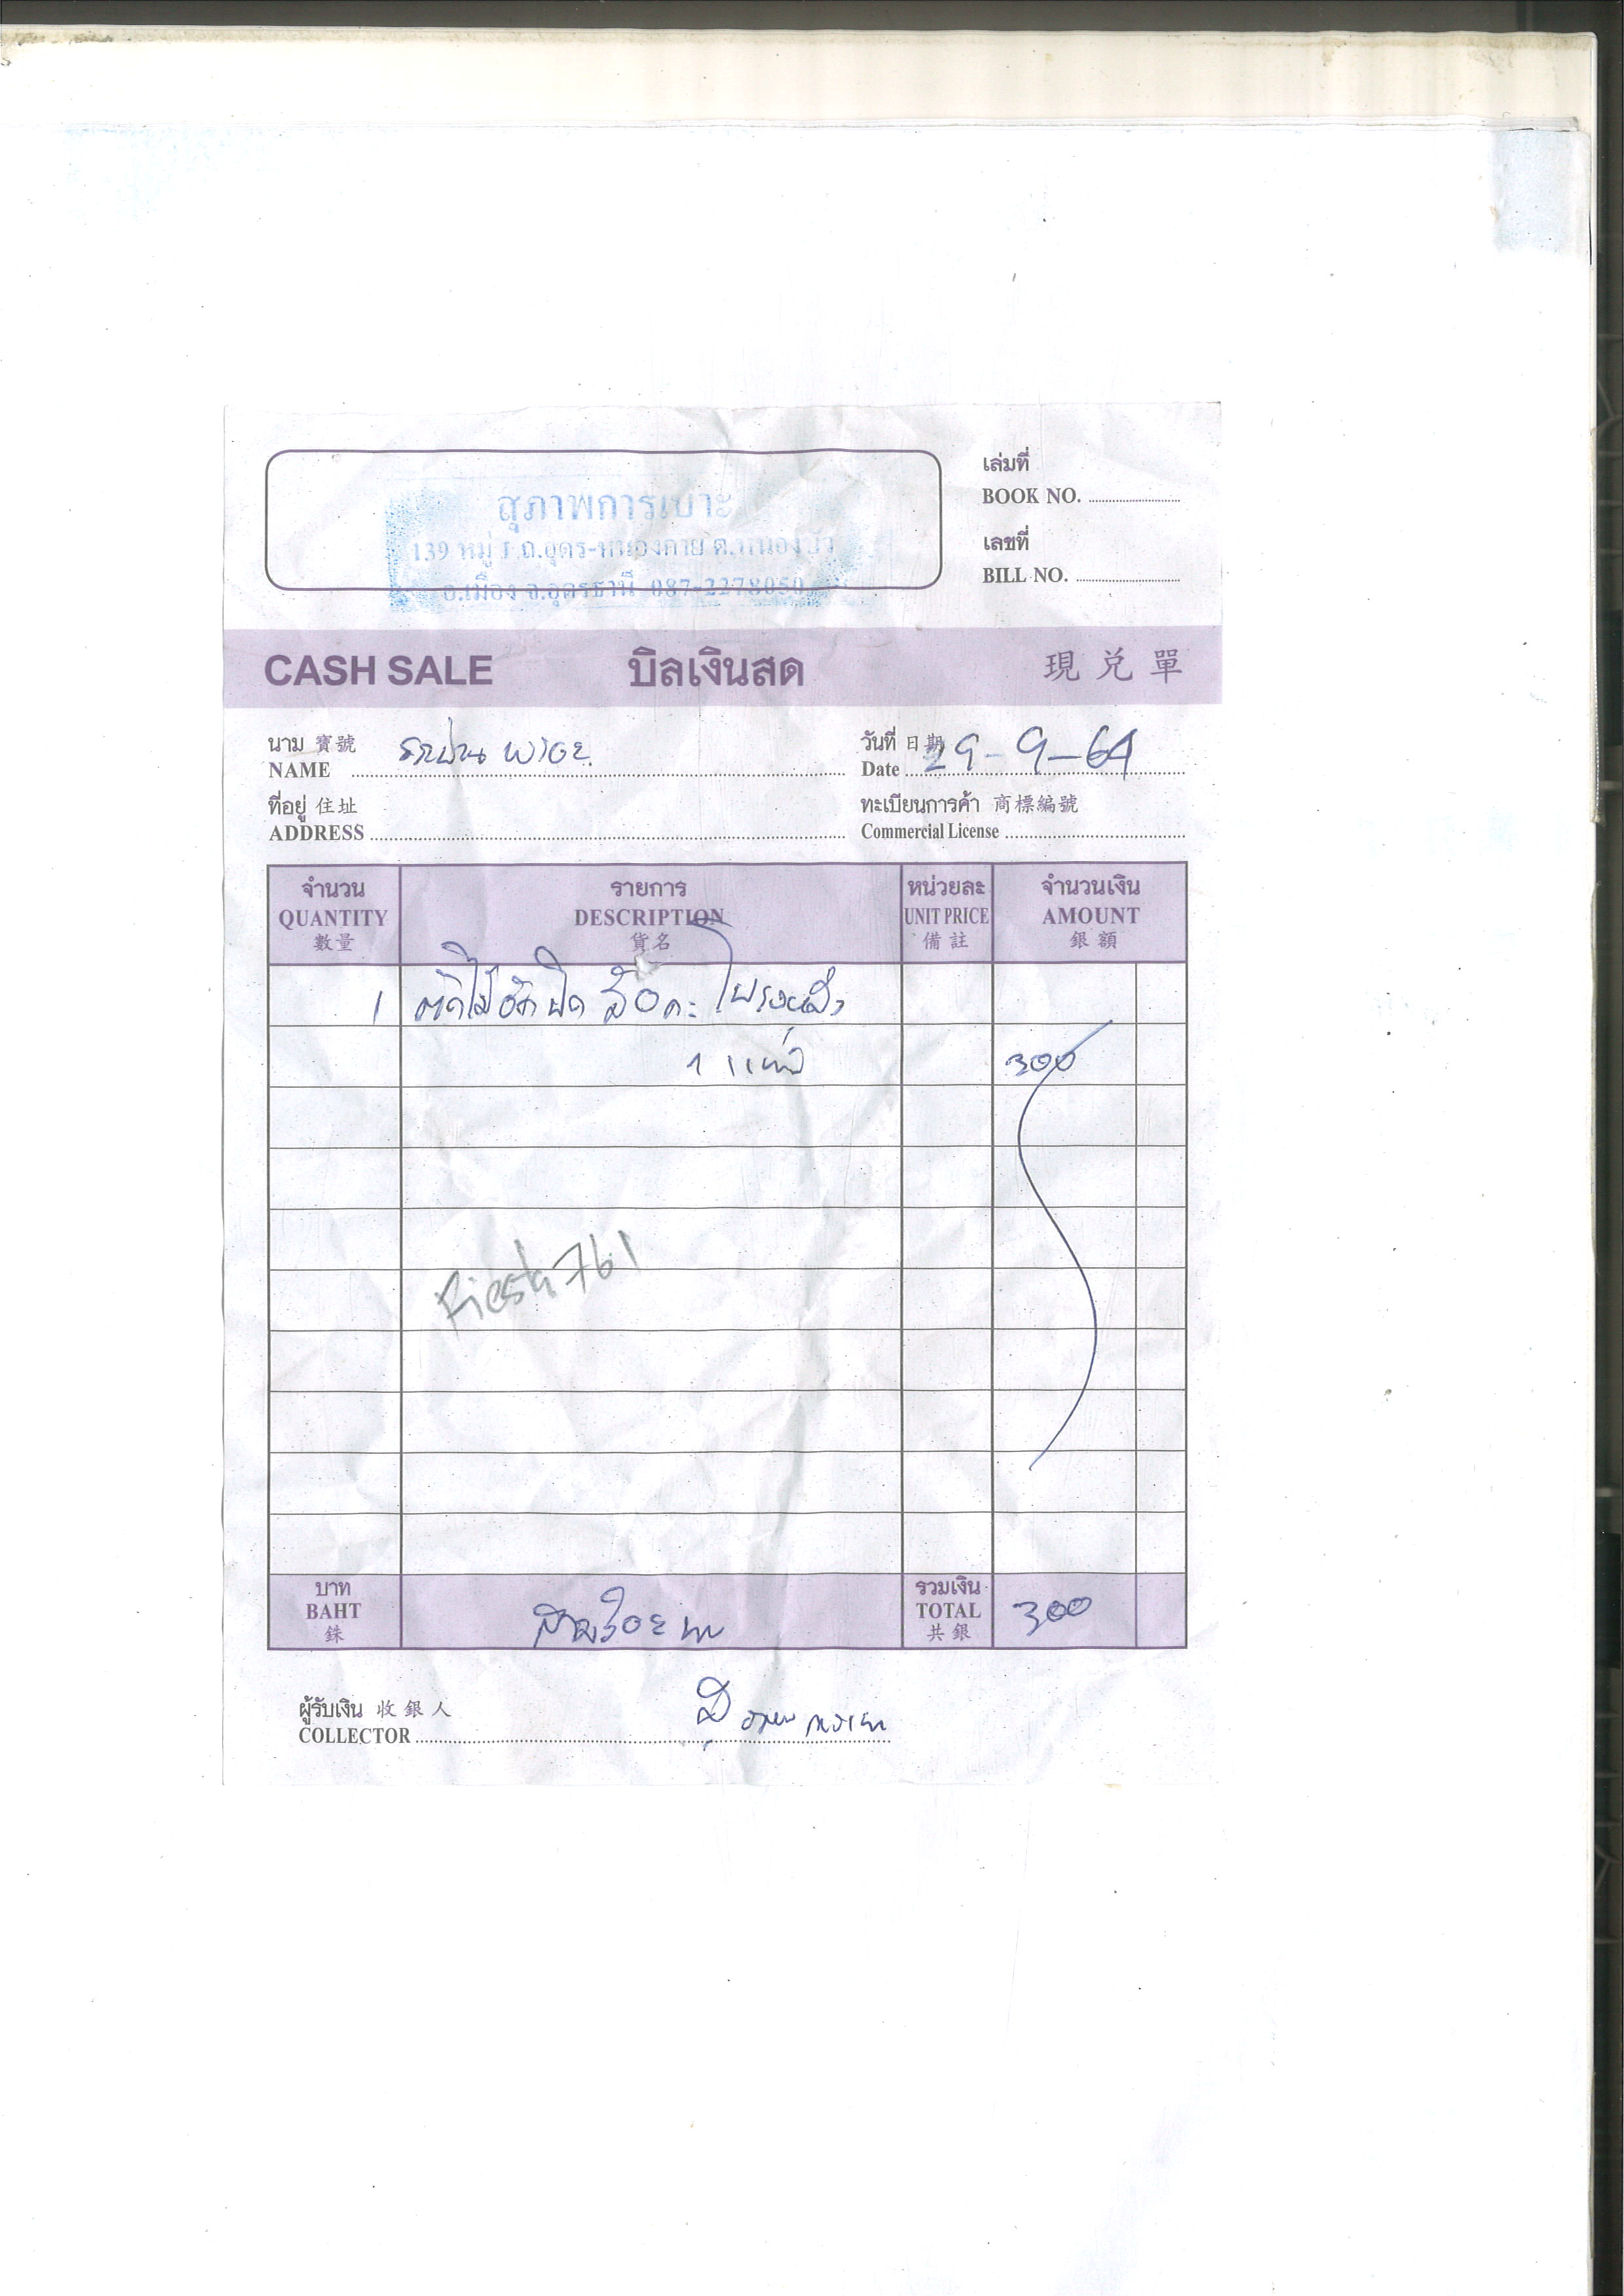 สุภาพการเบาะ
139 หมู่ 1 ถ.อุดร-หนองคาย ต.หนองบัว
อ.เมือง จ.อุดรธานี 087-2278050
เล่มที่
BOOK NO.
เลขที่
BILL NO.
CASH SALE บิลเงินสด 現兌單
นาม 寶號
NAME
วันที่ 日期
Date 29-9-64
ที่อยู่ 住址
ADDRESS
ทะเบียนการค้า 商標編號
Commercial License
จำนวน รายการ หน่วยละ จำนวนเงิน
QUANTITY DESCRIPTION UNIT PRICE AMOUNT
數量 貨名 備註 銀額
1 ตัดไม้อัดปิด
1 แผ่น 300
Fiesta 761
บาท รวมเงิน
BAHT สามร้อยบาท TOTAL 300
銖 共銀
ผู้รับเงิน 收銀人
COLLECTOR